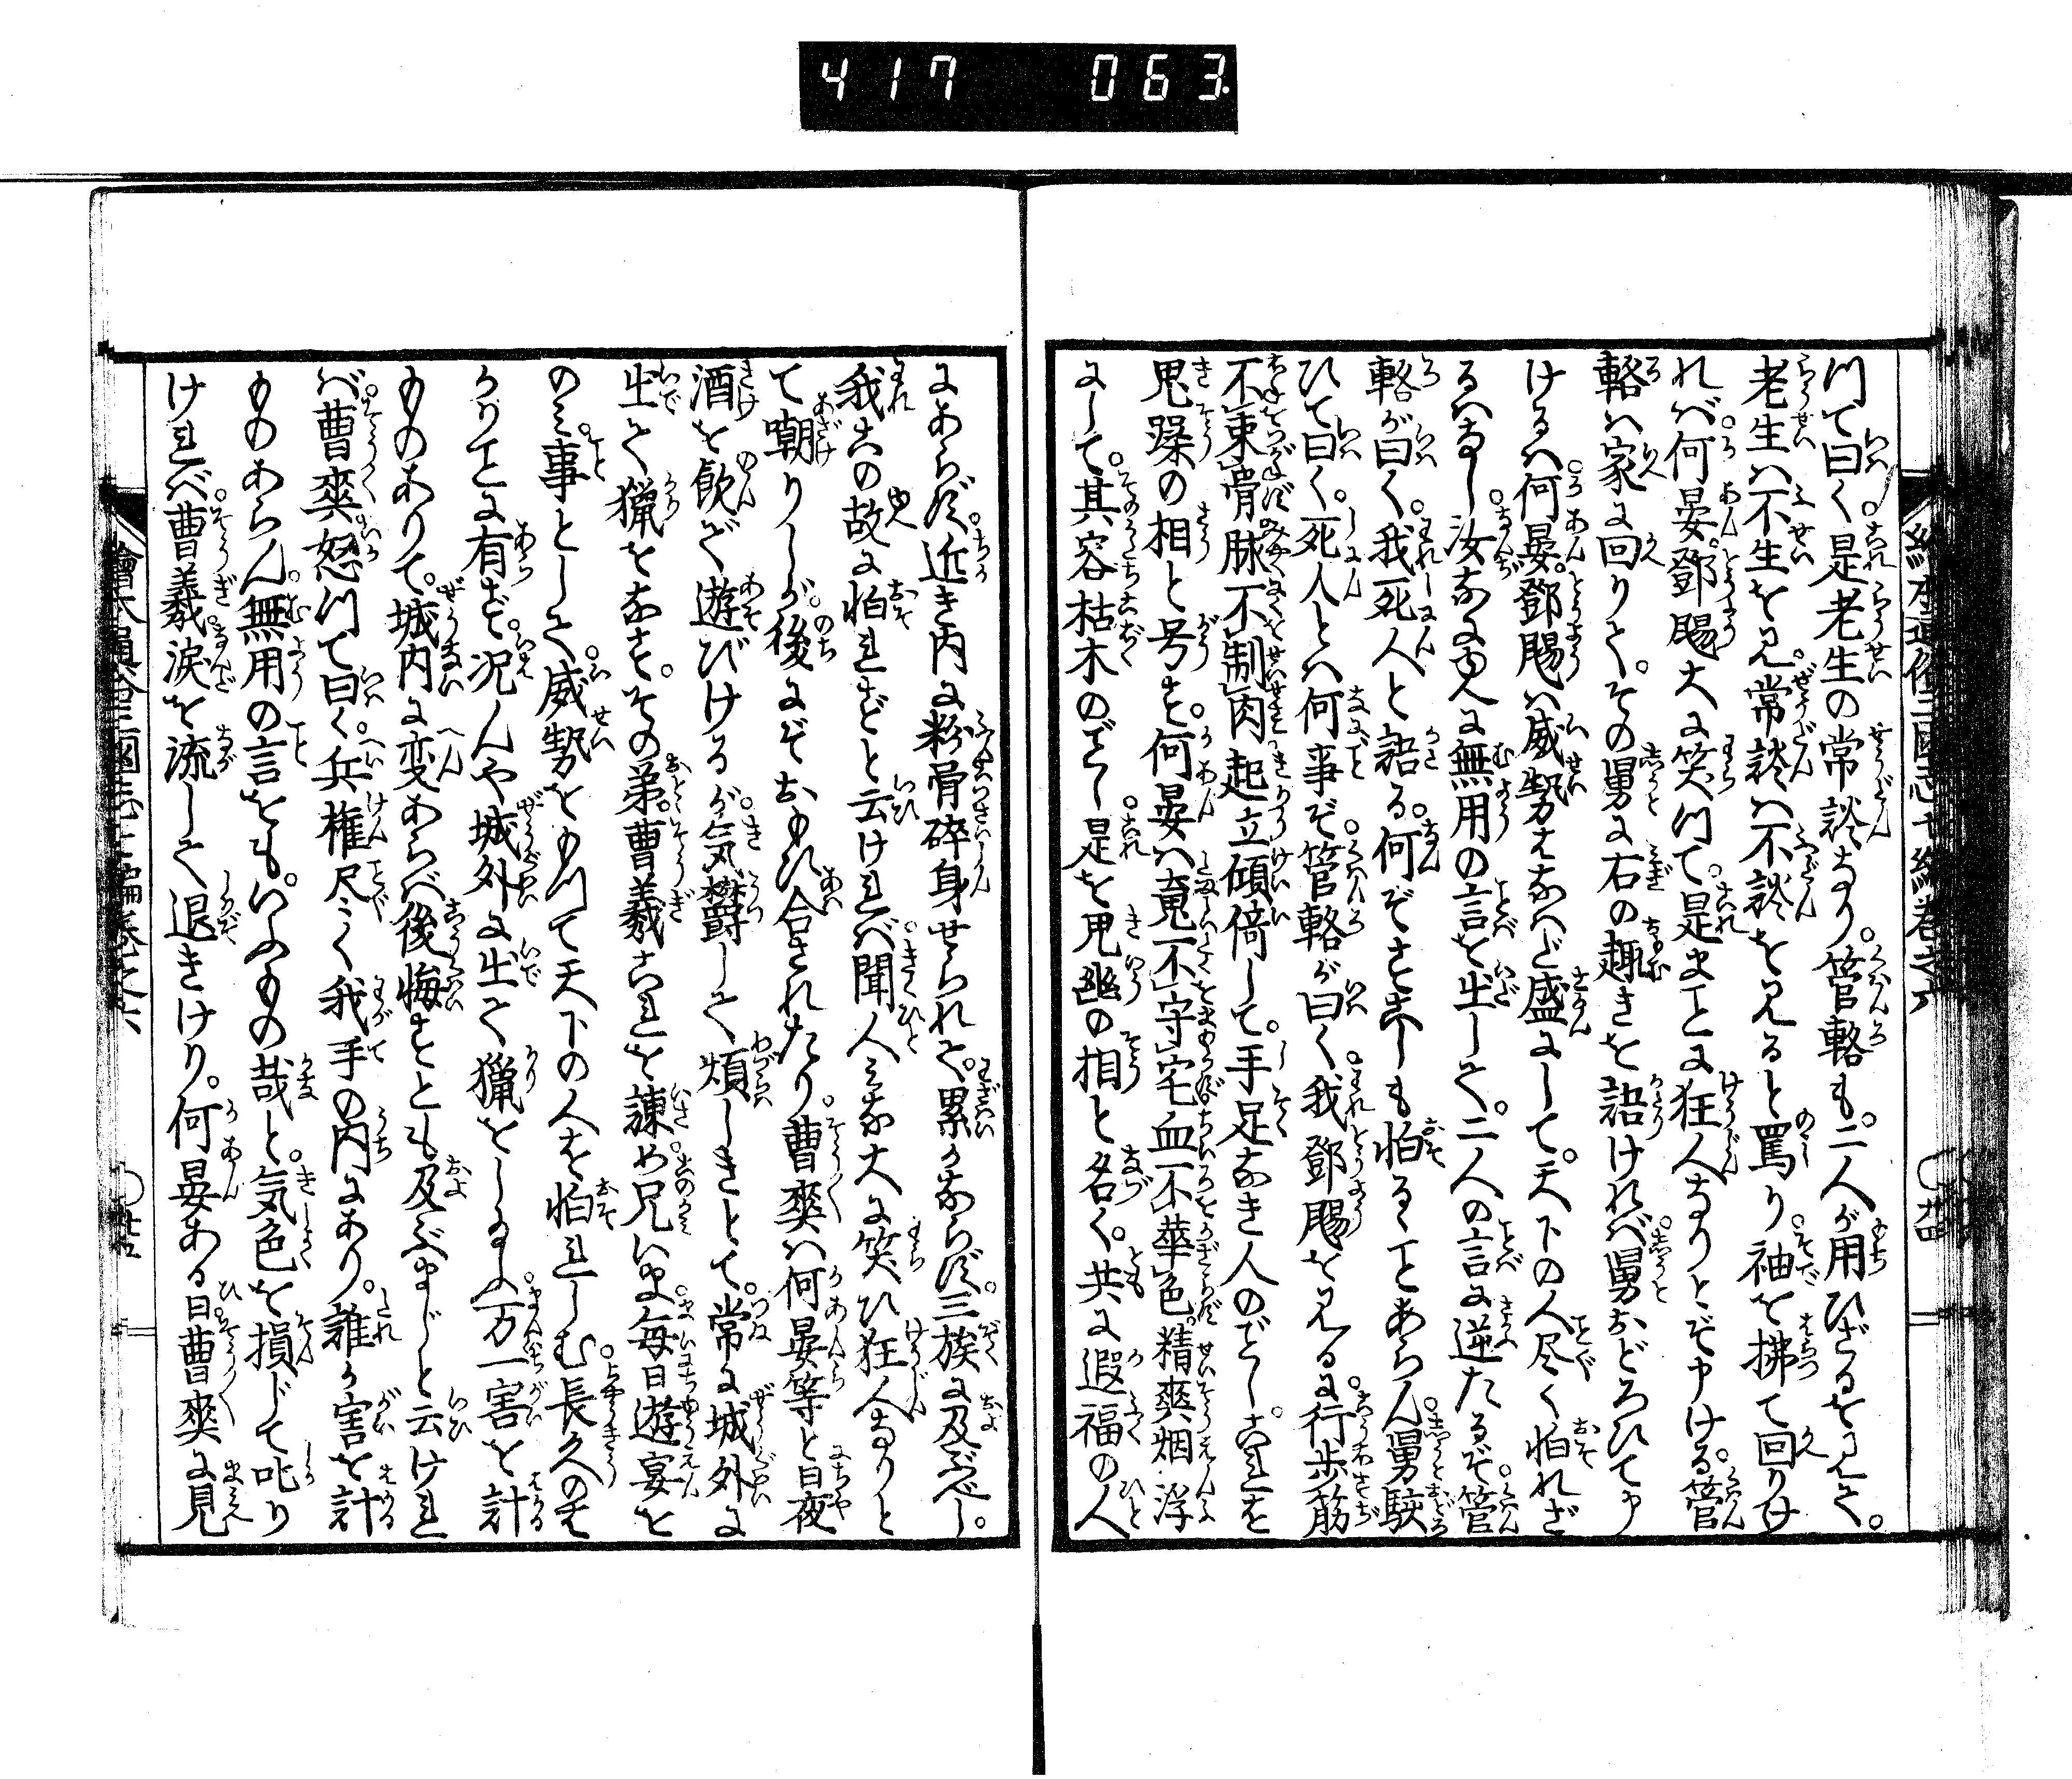 417 063
つて曰く。是老生の常談なり。管輅も。二人が用ひざるを見て。
老生は不生を見。常談は不談を見ると罵り。袖を拂て回りけ
れば。何晏。鄧颺大に笑つて。是まことに狂人なりとぞ申ける。管
輅は家に回りて。その舅に右の趣きを語ければ。舅おどろひて申
けるは。何晏。鄧颺は威勢はなはだ盛にして。天下の人尽く怕れざ
るはなし。汝なにゆへに無用の言を出して。二人の言に逆たるぞ。管
輅が曰く。我死人と語る。何ぞすこしも怕るゝことあらん。舅駭
ひて曰く。死人とは何事ぞ。管輅が曰く。我鄧颺を見るに。行歩筋
不束骨脉不制肉起立傾倚して。手足なき人のごとし。これを
鬼躁の相と号す。何晏は䰟不守宅血不華色。精爽烟浮
にして。其容枯木のごとし。是を鬼幽の相と名く。共に遐福の人
にあらず。近き内に粉骨碎身せられて。累かならず。三族に及ぶべし。
我この故に怕れずと云ければ。聞人みな大に笑ひ狂人なりと
て嘲りしが。後にぞおもひ合されたり。曹爽は何晏等と日夜
酒を飲で遊びけるが。気欝して煩しきとて。常に城外に
出て獵をなす。その弟。曹羲これを諫め。兄いま毎日遊宴を
のみ事として。威勢をもつて天下の人を怕れしむ。長久のは
かりことに有ず。况んや城外に出て獵をし給ふ。万一害を計
ものありて。城内に変あらば後悔すとも及ぶまじと云けれ
ば。曹爽怒つて曰く。兵権尽く我手の内にあり。誰か害を計
ものあらん。無用の言をも。いふもの哉と。気色を損じて叱り
ければ。曹羲。涙を流して退きけり。何晏ある日曹爽に見